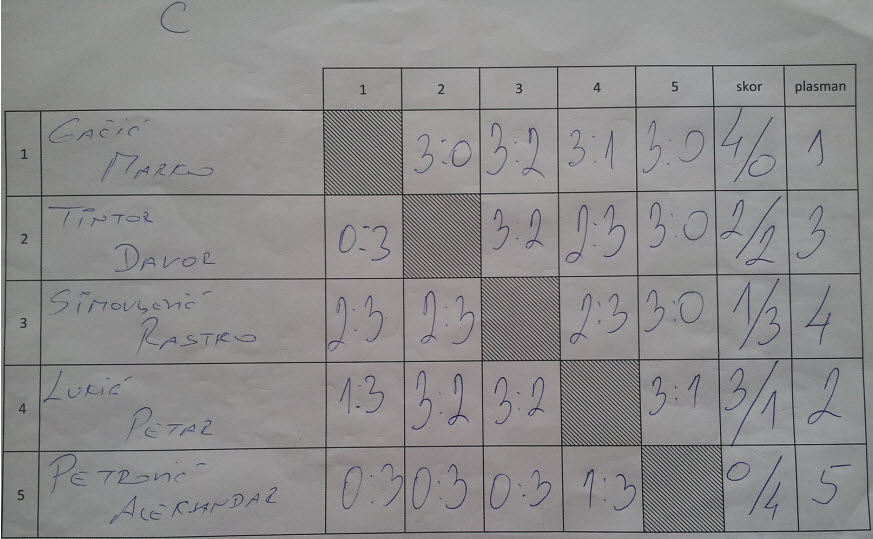 C
1 2 3 4 5 skor plasman
1 Gačić Marko 3:0 3:2 3:1 3:0 4/0 1
2 Tintor Davor 0:3 3:2 2:3 3:0 2/2 3
3 Rastko 2:3 2:3 2:3 3:0 1/3 4
4 Lukić Petar 1:3 3:2 3:2 3:1 3/1 2
5 Petrović Aleksandar 0:3 0:3 0:3 1:3 0/4 5